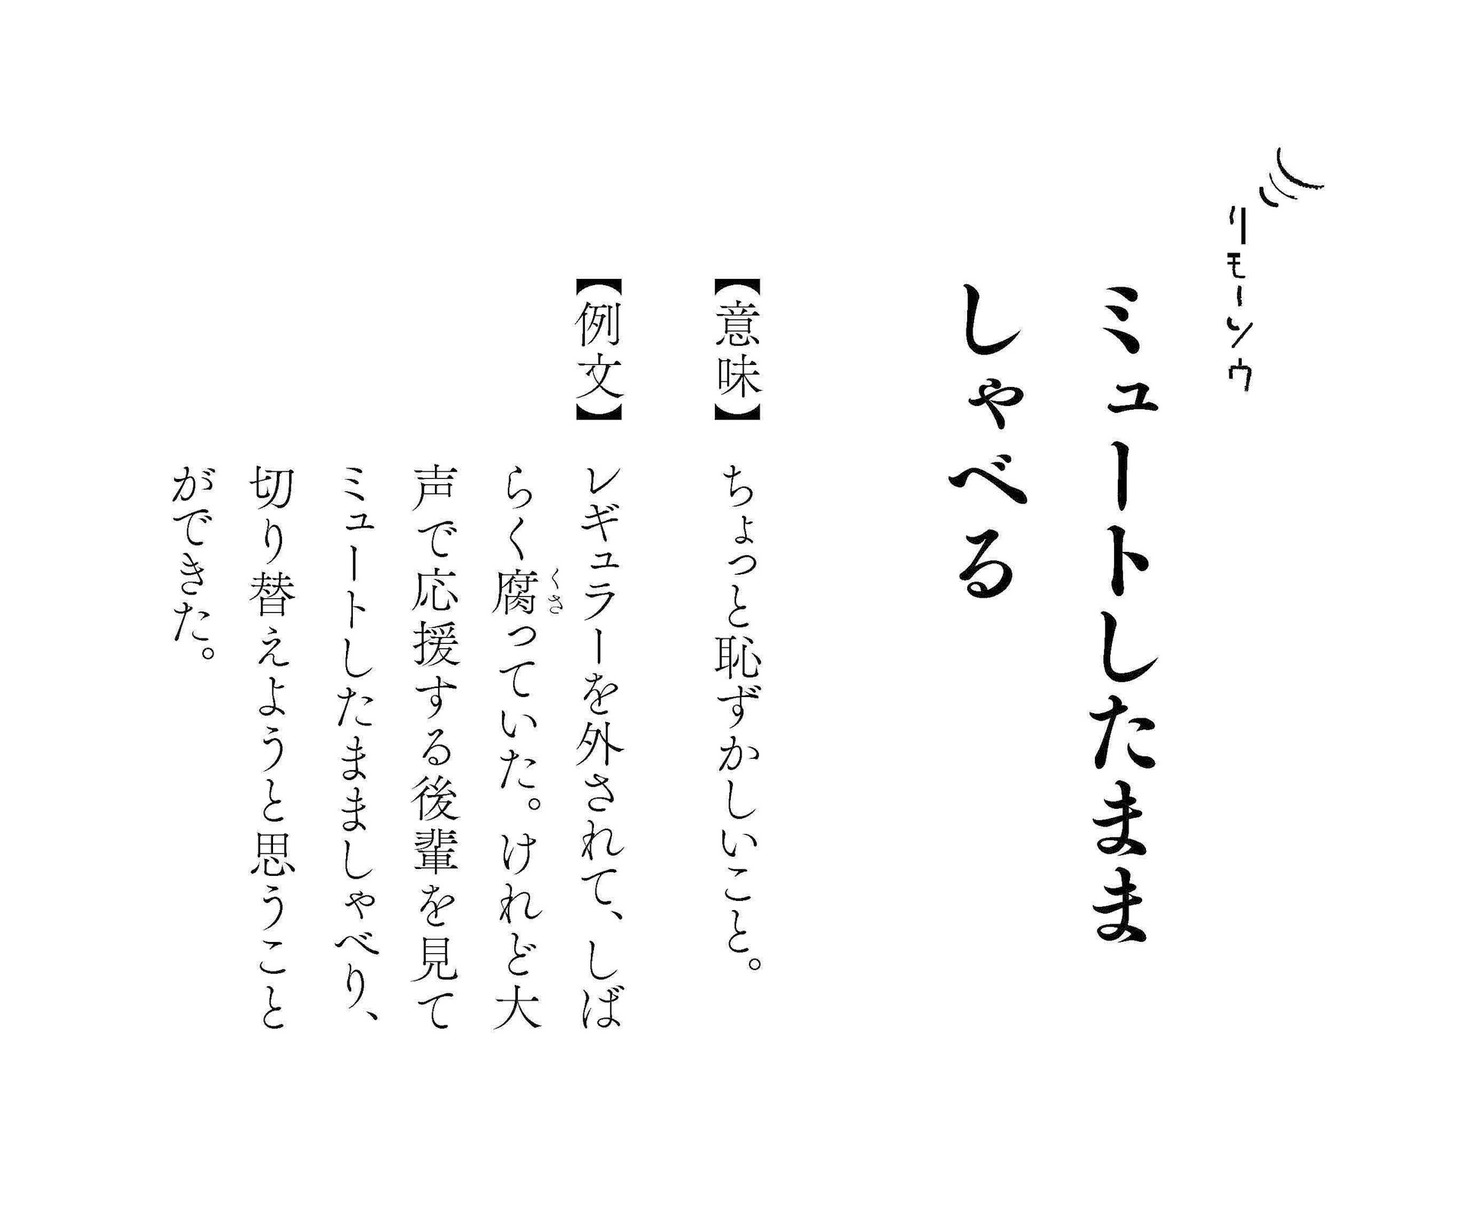 リモーソウ
ミュートしたまま
しゃべる
【意味】 ちょっと恥ずかしいこと。
【例文】 レギュラーを外されて、しば
らく腐っていた。けれど大
くさ
声で応援する後輩を見て
ミュートしたまましゃべり、
切り替えようと思うこと
ができた。